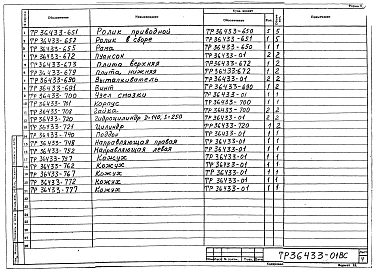 Обозначение Наименование Обозначение Примечание
ТР36433-651 Ролик приводной ТР36433-650 5 5
ТР36433-652 Ролик в сборе ТР36433-651 1 5
ТР36433-655 Рама ТР36433-650 1 1
ТР36433-672 Пуансон ТР36433-01 2 2
ТР36433-673 Плита верхняя ТР36433-672 2 2
ТР36433-679 Плита нижняя ТР36433-672 1 2
ТР36433-690 Выталкиватель ТР36433-01 2 2
ТР36433-691 Винт ТР36433-690 1 2
ТР36433-700 Узел смазки ТР36433-01 1 1
ТР36433-701 Корпус ТР36433-700 1 1
ТР36433-702 Бойка ТР36433-700 2 2
ТР36433-720 Гидроцилиндр D=140, S=250 ТР36433-01 2 2
ТР36433-721 Цилиндр ТР36433-720 1 2
ТР36433-740 Поддон ТР36433-01 1 1
ТР36433-748 Направляющая правая ТР36433-01 1 1
ТР36433-752 Направляющая левая ТР36433-01 1 1
ТР36433-757 Кожух ТР36433-01 1 1
ТР36433-762 Кожух ТР36433-01 1 1
ТР36433-767 Кожух ТР36433-01 1 1
ТР36433-772 Кожух ТР36433-01 1 1
ТР36433-777 Кожух ТР36433-01 1 1
ТР36433-01ВС